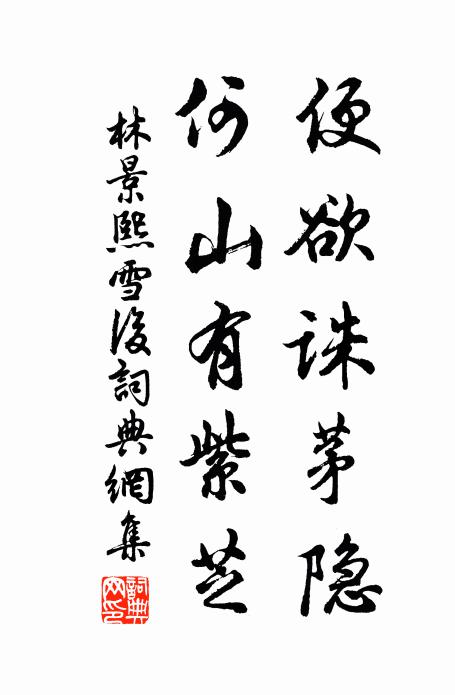 便欲誅茅隐
何山有紫芝
林景熙雪後詞典網集
詞典
网印